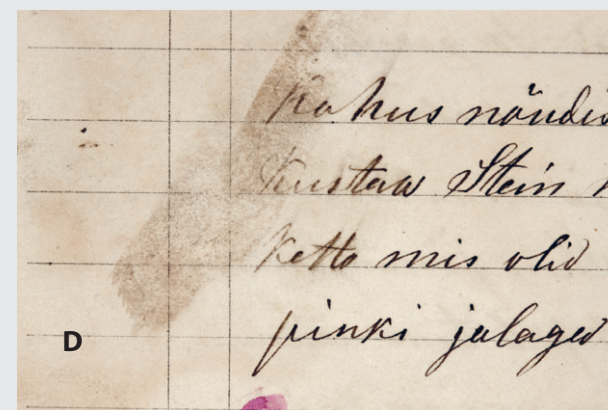 Kohus nõudis
Kustaw Stein
Ketto mis olid
pinki jalaged
D